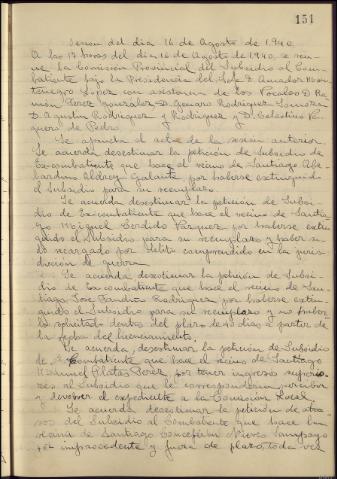 151
Sesion del dia 16 de Agosto de 1940
A las 17 horas del dia 16 de Agosto de 1940, se reu-
ne la Comision Provincial del Subsidio al Com-
batiente bajo la Presidencia del D. Amador Mon-
tenegro Lopez con asistencia de los Vocales D. Ra-
mon Perez Gonzalez D. Genaro Rodriguez
D. Agustin Rodriguez y Rodriguez y D. Celestino
de Pedro.
Se aprueba el acta de la sesion anterior
Se acuerda desestimar la peticion de Subsidio de
Excombatiente que hace el vecino de Santiago Abe-
lardino Aldrey Galante por haberse extinguido
el Subsidio para su reemplazo.
Se acuerda desestimar la peticion de Subsi-
dio de Excombatiente que hace el vecino de Santia-
go Miguel Cerdido Vazquez por haberse extin-
guido el subsidio para su reemplazo y haber si-
do recargado por delito comprendido en la juris-
diccion de guerra.
Se acuerda desestimar la peticion de Subsi-
dio de Excombatiente que hace el vecino de San-
tiago Jose Rodriguez por haberse extin-
guido el Subsidio para su reemplazo y no haber-
lo solicitado dentro del plazo de dias a partir de
la fecha del licenciamiento.
Se acuerda, desestimar la peticion de Subsidio
de Combatiente que hace el vecino de Santiago
Manuel Platas Perez, por tener ingresos superio-
res al Subsidio que le corresponderia percibir
y devolver el expediente a la Comision Local.
Se acuerda desestimar la peticion de atra-
sos del Subsidio al Combatiente que hace la
de Santiago Concepcion Nieves Sampayo
por improcedente y fuera de plazo, toda vez